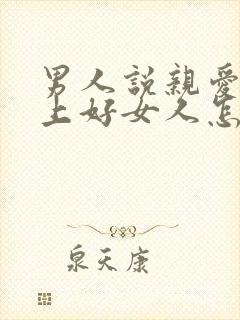 男人説親愛
上好女人怎
泉天康